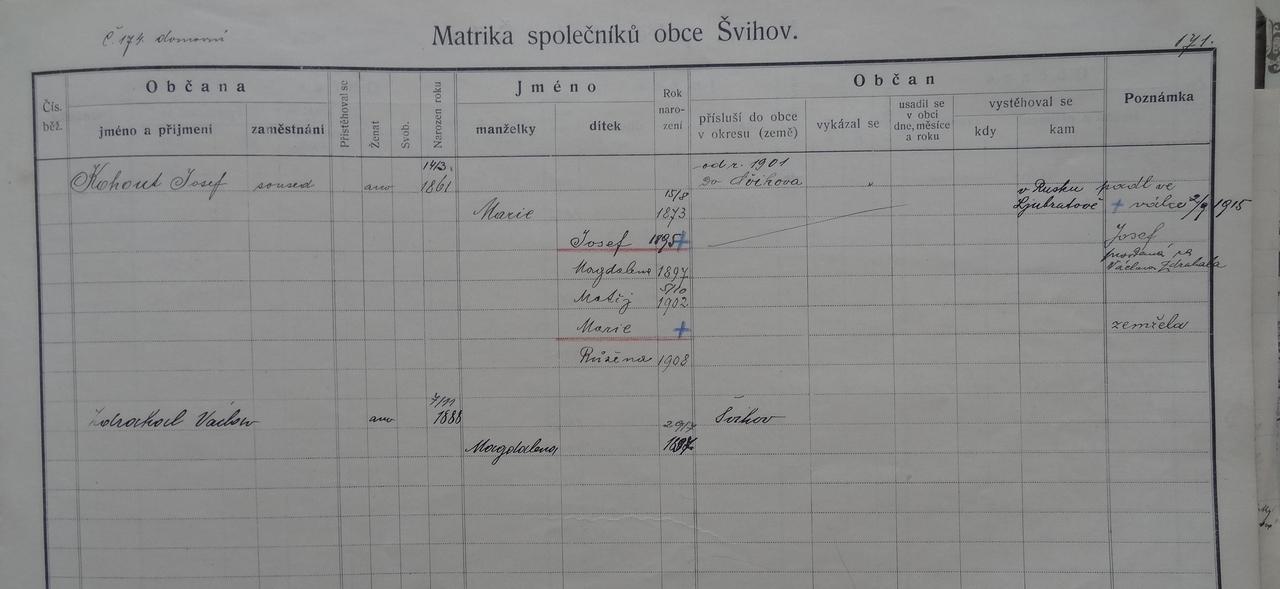 Č. 174. domovní
Matrika společníků obce Švihov.
171.
Čís. běž.
Občana
jméno a přijmení
zaměstnání
Přistěhoval se
Ženat
Svob.
Narozen roku
Jméno
manželky
dítek
Rok naro- zení
Občan
přísluší do obce v okresu (země)
vykázal se
usadil se v obci dne, měsíce a roku
vystěhoval se
kdy
kam
Poznámka
Kohout Josef soused ano 14/3. 1861 od r. 1901 do Švihova "
v Rusku padl ve
Marie 15/8 1873 Ljubratově + válce 2/9 1915
Josef 1895 + Josef
Magdalena 1897 prodaná za Václava Zdrahala
Matěj 5/10 1902
Marie + zemřela
Růžena 1908
Zdrahal Václav ano 7/11 1888 Švihov
Magdalena 29/7 1897